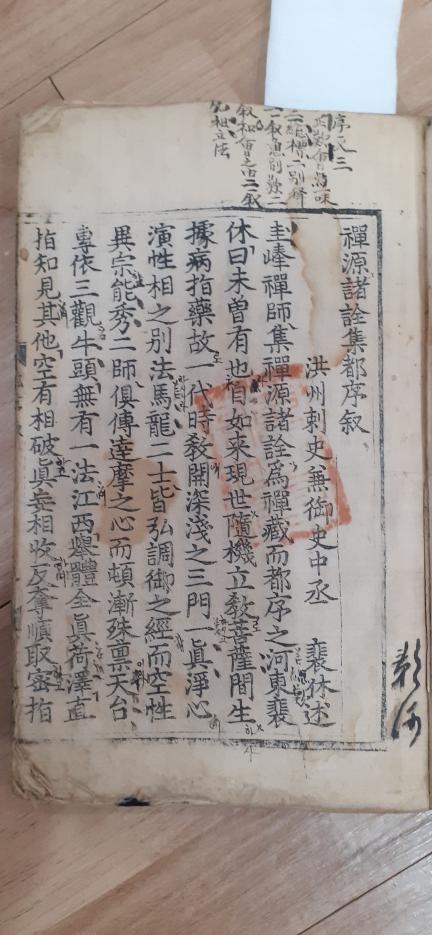 禪源諸詮集都序叙
洪州刺史兼御史中丞 裴休述
圭峰禪師集禪源諸詮爲禪藏而都序之河東裴
休曰未曽有也自如来現世隨機立敎菩薩間生
據病指藥故一代時敎開深淺之三門一眞淨心
演性相之別法馬龍二士皆弘調御之經而空性
異宗能秀二師俱傳達摩之心而頓漸殊禀天台
專依三觀牛頭無有一法江西舉體全眞荷澤直
指知見其他空有相破眞妄相收反奪順取密指